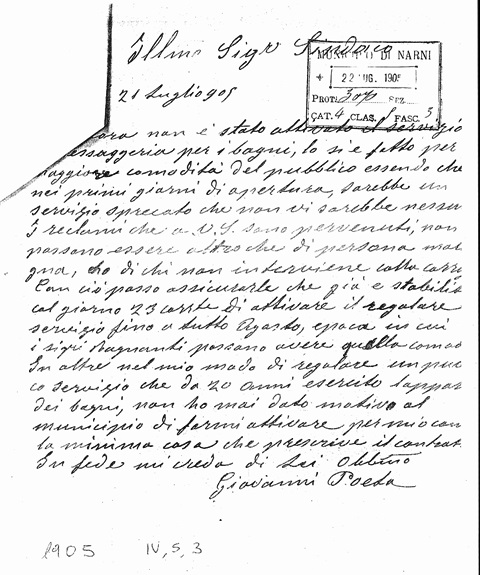 Illmo Sigr Sindaco
MUNICIPIO DI NARNI
22 LUG. 1905
PROT. SEZ.
CAT. 4 CLAS. FASC. 5
21 Luglio 905
ora non è stato attivato il servizio
assaggeria per i bagni, lo si è fatto per
maggiore comodità del pubblico essendo che
nei primi giorni di apertura, sarebbe un
servizio sprecato che non vi sarebbe nessu
I reclami che a V.S. sono pervenuti, non
possono essere altro che di persona mali
gna, o di chi non interviene colla corri
Con ciò posso assicurarle che già è stabilito
col giorno 23 corrte di attivare il regolare
servizio fino a tutto Agosto, epoca in cui
i sigri Bagnanti possano avere quella comod
In oltre nel mio modo di regolare un pub
co servizio che da 20 anni esercito l'appar
dei bagni, non ho mai dato motivo al
municipio di farmi attivare per mio con
la minima cosa che prescrive il contrat
In fede mi creda di Lei Obbmo
Giovanni Poeta
1905 IV, 5, 3